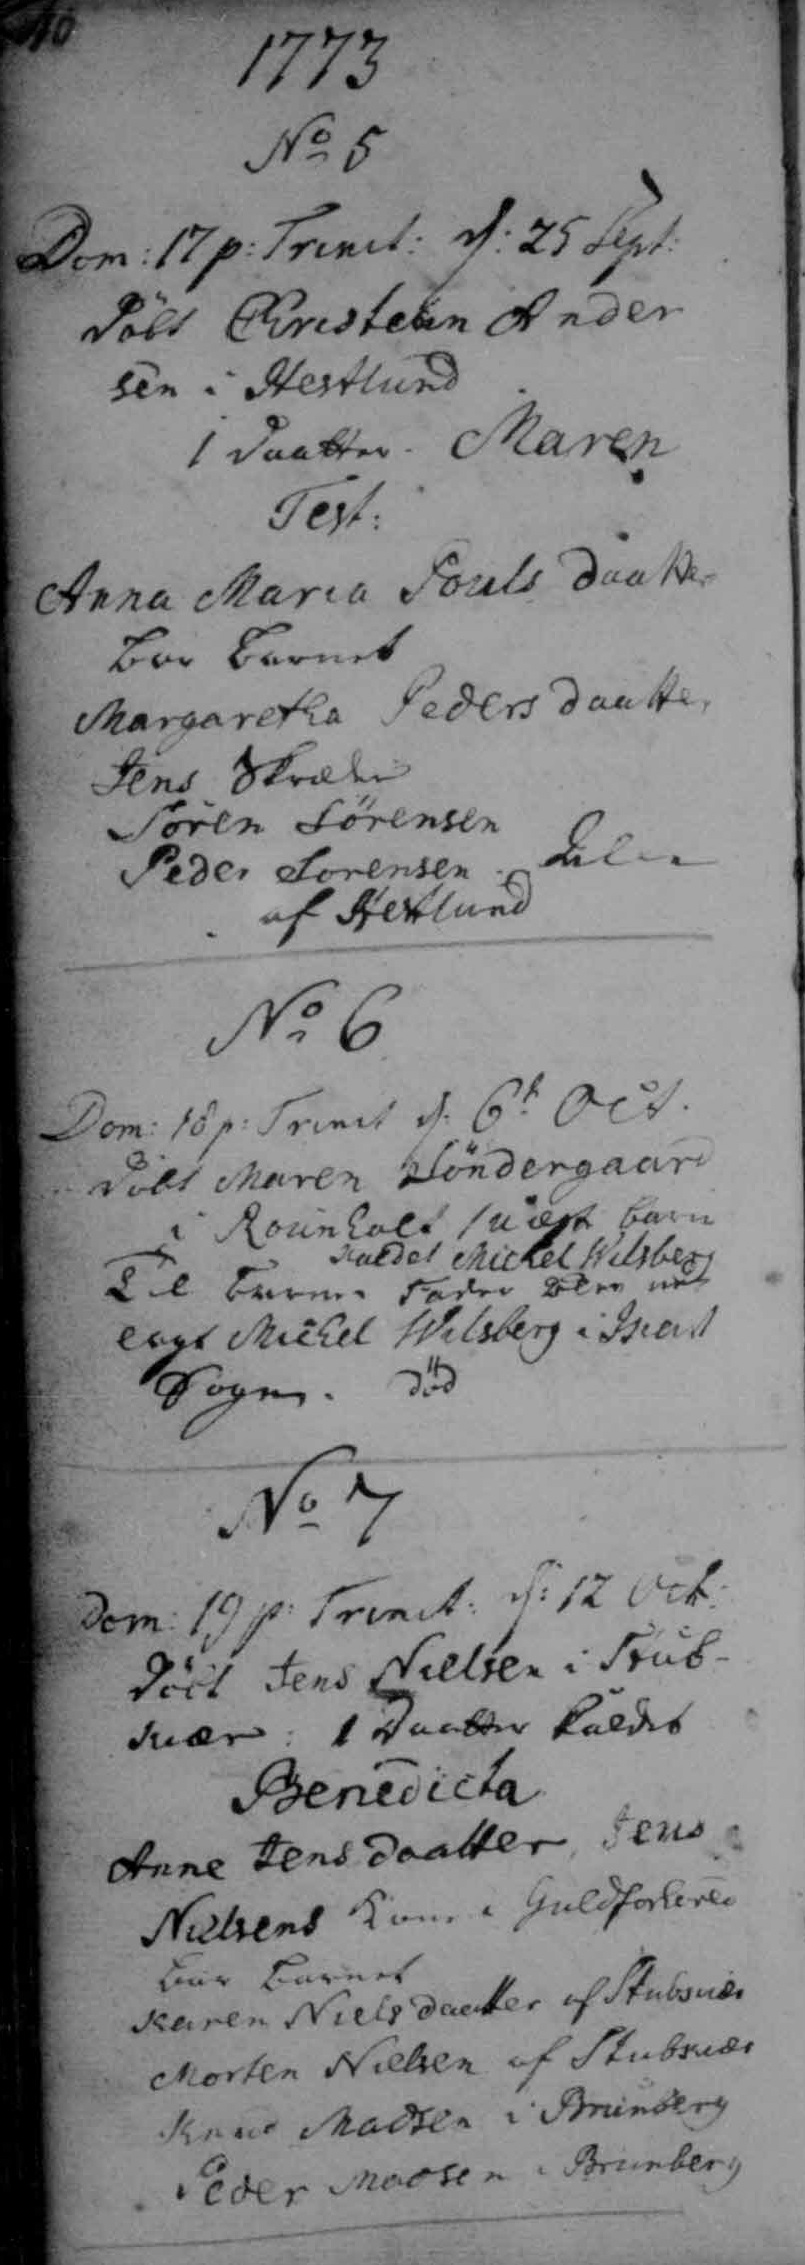 1773
No 5
Dom: 17 p: Trinit: d: 25 Sept:
Döbt Christen Ander
sen i Hestlund
1 Daatter. Maren
Test:
Anna Maria Pouls daatter
bar barnet
Margaretha Peders daatter
Jens Skræder
Sören Sörensen
Peder Sörensen. Alle
af Hestlund
No 6
Dom: 18 p: Trinit d: 6t Oct.
Döbt Maren Söndergaard
i Rounholt 1 uægte barn
kaldet Michel Wilsberg
Til barnets Fader blev ud
lagt Michel Wilsberg i
Sogn. död
No 7
Dom: 19 p: Trinit: d: 12 Oct:
Döbt Jens Nielsen i Stub-
kiær: 1 Daatter kaldet
Benedicta
Anne Jens daatter, Jens
Nielsens Kone i Guldforhoved
bar barnet
Karen Niels daatter af Stubkiær
Morten Nielsen af Stubkiær
Knud Madsen i Brunberg
Peder Madsen i Brunberg